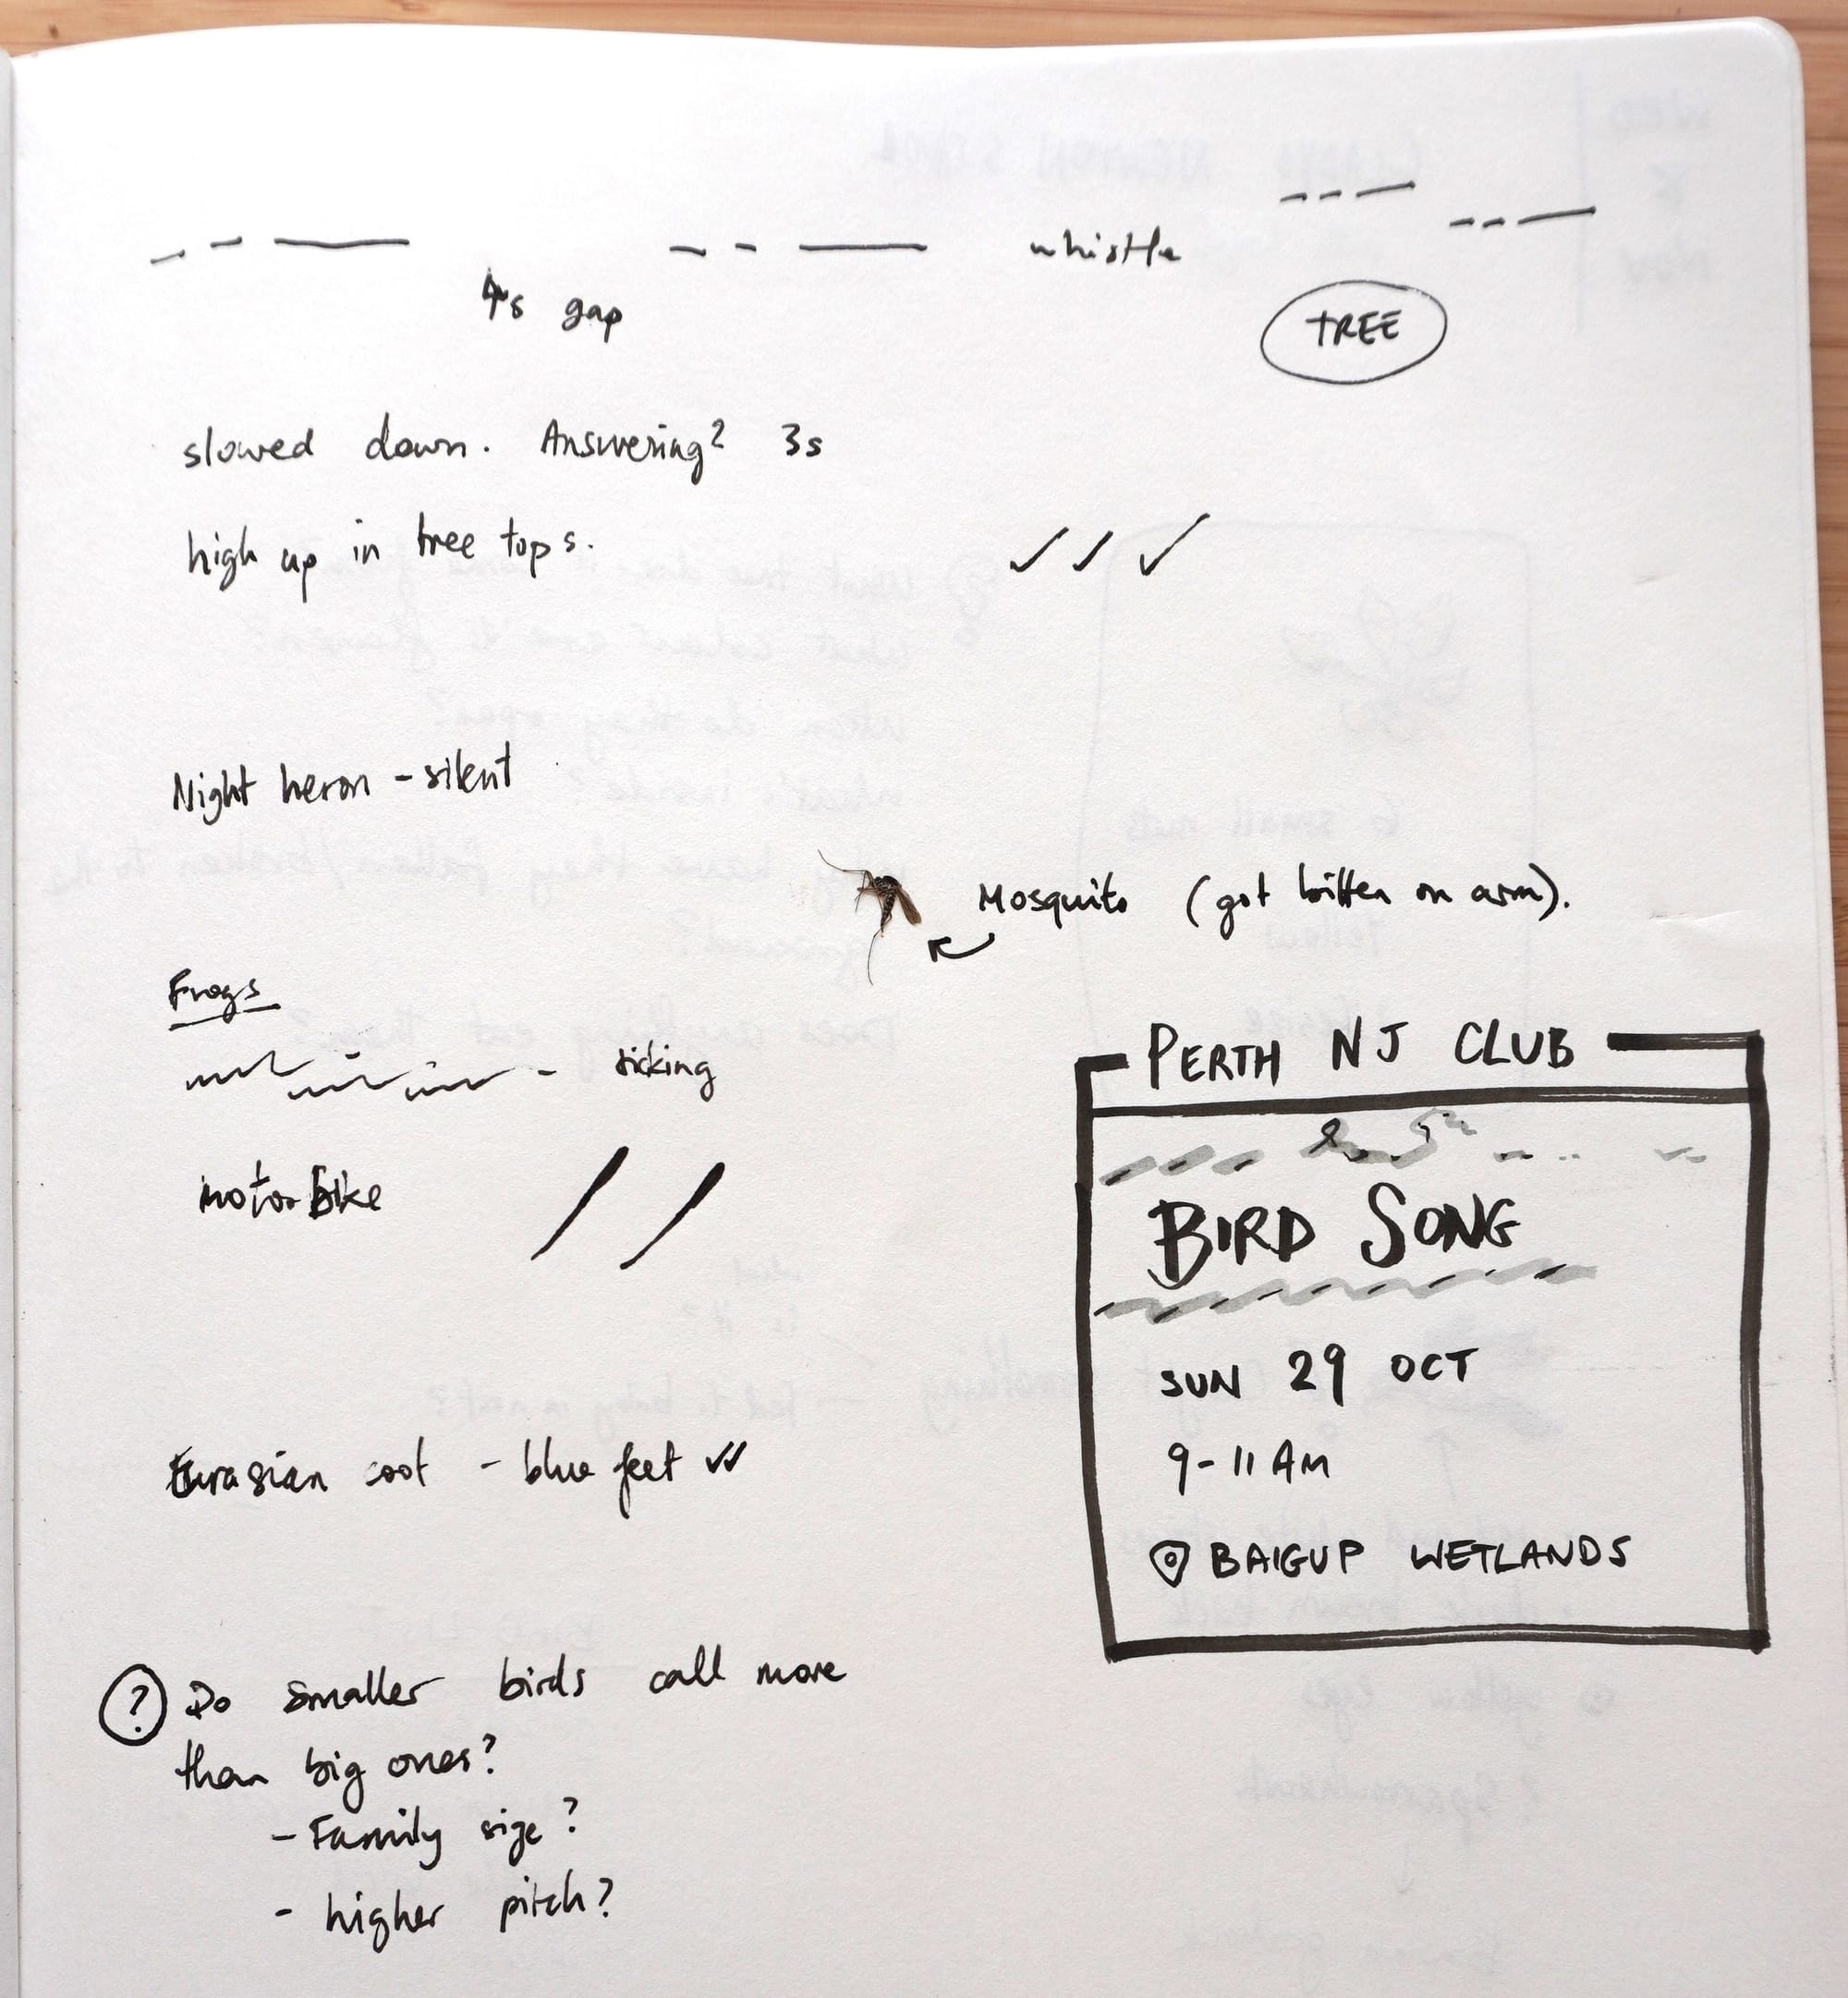 whistle
4s gap
TREE
slowed down. Answering? 3s
high up in tree tops.
Night heron - silent
Mosquito (got bitten on arm).
Frogs
- ticking
motorbike
Eurasian coot - blue feet
? Do smaller birds call more
than big ones?
- Family size?
- higher pitch?
PERTH NJ CLUB
BIRD SONG
SUN 29 OCT
9-11 AM
BAIGUP WETLANDS